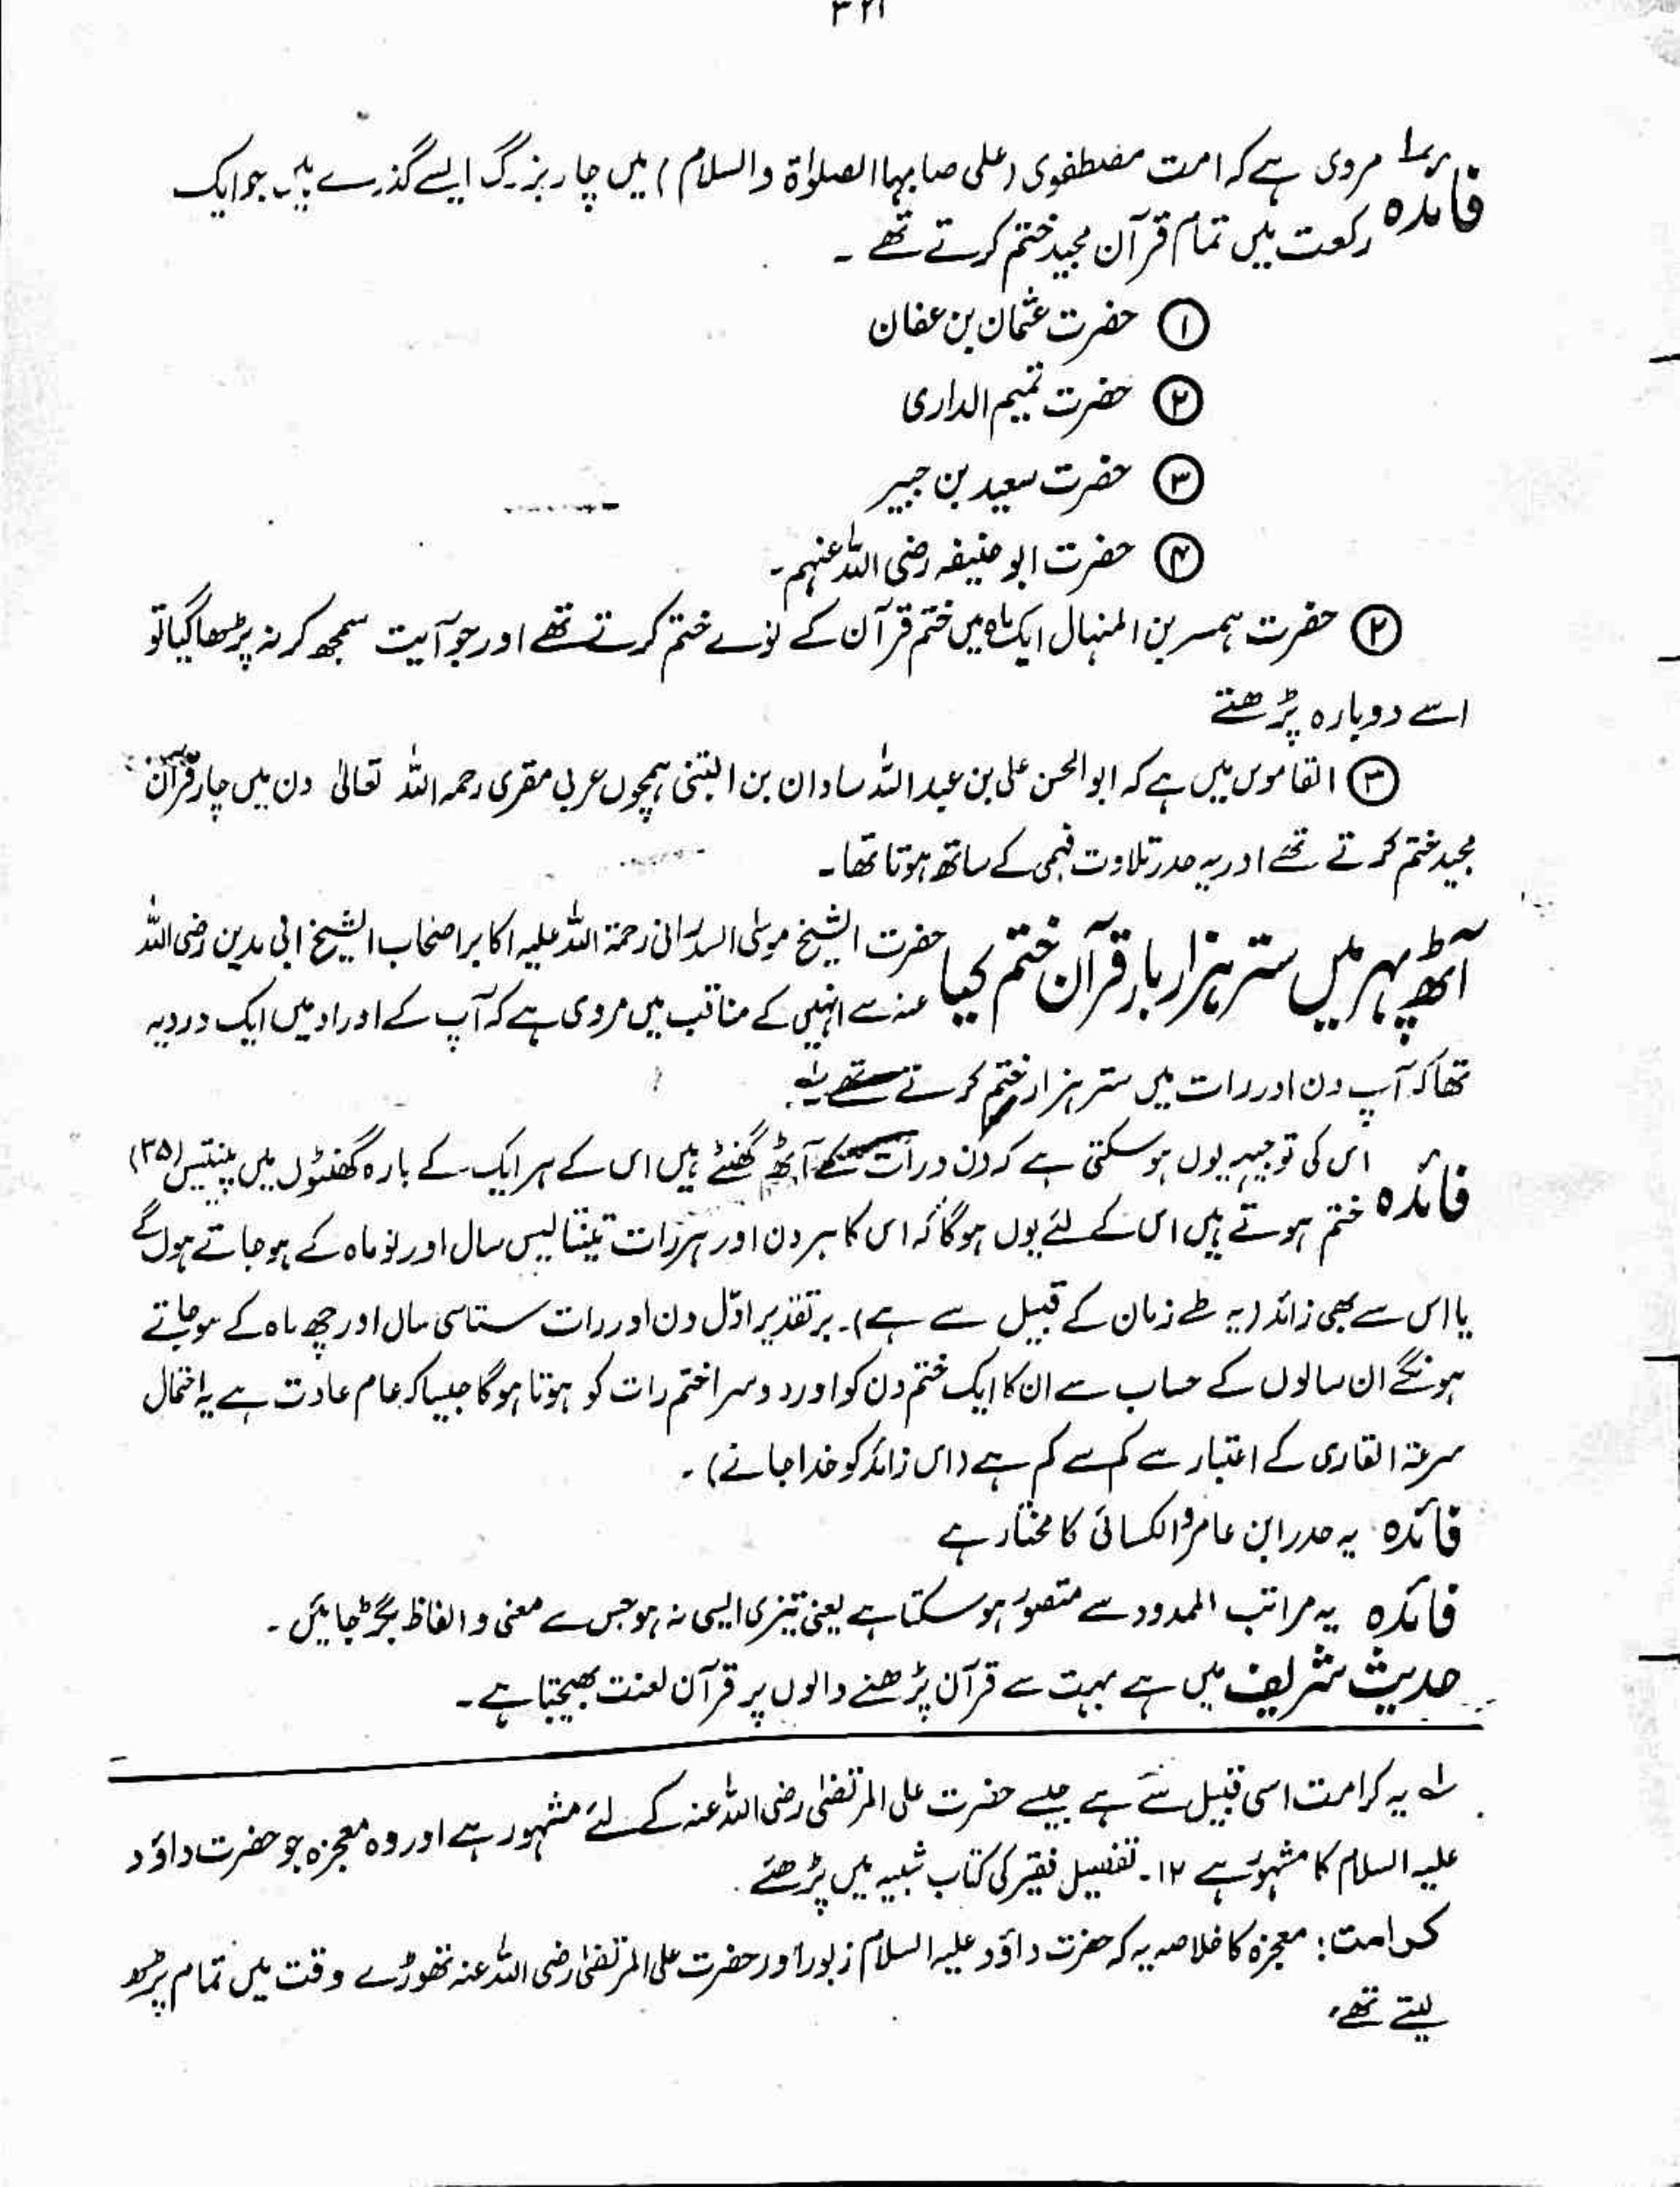 ۳۲۱
فائدہ مروی ہے کہ امت مصطفوی (علی صاحبہا الصلوٰۃ والسلام) میں چار بزرگ ایسے گذرے ہیں جو ایک
رکعت میں تمام قرآن مجید ختم کرتے تھے ۔
① حضرت عثمان بن عفان
② حضرت تمیم الداری
③ حضرت سعید بن جبیر
④ حضرت ابو حنیفہ رضی اللہ عنہم۔
② حضرت ہمسر بن المنہال ایک ماہ میں ختم قرآن کے نوے ختم کرتے تھے اور جو آیت سمجھ کر نہ پڑھا گیا تو
اسے دوبارہ پڑھتے
③ القاموس میں ہے کہ ابوالحسن علی بن عبد اللہ سادان بن البتنی ہمچوں عربی مقری رحمہ اللہ تعالیٰ دن میں چار قرآن
مجید ختم کرتے تھے اور یہ حدر تلاوت فہمی کے ساتھ ہوتا تھا۔
آٹھ پہر میں ستر ہزار بار قرآن ختم کیا حضرت الشیخ موسٰی السدرانی رحمۃ اللہ علیہ اکابر اصحاب الشیخ ابی مدین رضی اللہ
عنہ سے انہیں کے مناقب میں مروی ہے کہ آپ کے اوراد میں ایک ورد یہ
تھا کہ آپ دن اور رات میں ستر ہزار ختم کرتے تھے لہ
فائدہ اس کی توجیہہ یوں ہو سکتی ہے کہ دن و رات کے آٹھ گھنٹے ہیں اس کے ہر ایک کے بارہ گھنٹوں میں پینتیس (۳۵)
ختم ہوتے ہیں اس کے لئے یوں ہوگا کہ اس کا ہر دن اور ہر رات تینتالیس سال اور نو ماہ کے ہو جاتے ہوں گے
یا اس سے بھی زائد (یہ طے زمان کے قبیل سے ہے)۔ بر تقدیر اوّل دن اور رات ستاسی سال اور چھ ماہ کے ہو جاتے
ہونگے ان سالوں کے حساب سے ان کا ایک ختم دن کو اور دوسرا ختم رات کو ہوتا ہوگا جیسا کہ عام عادت ہے یہ احتمال
سرعۃ القاری کے اعتبار سے کم سے کم ہے (اس زائد کو خدا جانے) ۔
فائدہ یہ حدر ابن عامر و الکسائی کا مختار ہے
فائدہ یہ مراتب الممدود سے متصور ہو سکتا ہے یعنی تیزی ایسی نہ ہو جس سے معنی و الفاظ بگڑ جائیں ۔
حدیث شریف میں ہے بہت سے قرآن پڑھنے والوں پر قرآن لعنت بھیجتا ہے ۔
لہ یہ کرامت اسی قبیل سے ہے جیسے حضرت علی المرتضٰی رضی اللہ عنہ کے لئے مشہور ہے اور وہ معجزہ جو حضرت داؤد
علیہ السلام کا مشہور ہے ۱۲۔ تفصیل فقیر کی کتاب شبیہ میں پڑھئے ۔
کرامت: معجزہ کا خلاصہ یہ کہ حضرت داؤد علیہ السلام زبور اور حضرت علی المرتضٰی رضی اللہ عنہ تھوڑے وقت میں تمام پڑھ
لیتے تھے،